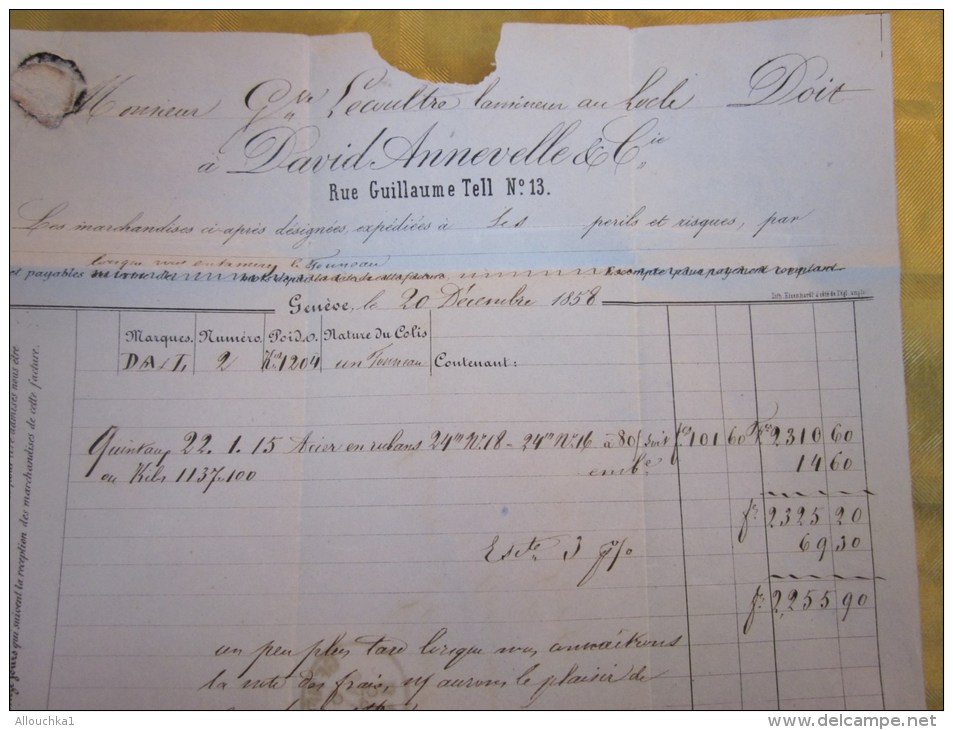 Monsieur Gve Lecoultre lamineur au Locle Doit
à David Annevelle & Cie
Rue Guillaume Tell No. 13.
Les marchandises ci-après désignées, expédiées à Ses perils et risques, par
lorsque vous entamerez le Tonneau
et payables
Genève, le 20 Décembre 1858
Marques. Numéro. Poids. Nature du Colis
DA & L 2 Ko 1204 un Tonneau Contenant:
Quintaux 22. 1. 15 Acier en rubans 24m No. 18 - 24m No. 16 à 80/ soit fcs 101 60 Fcs 2310 60
ou Kilos 1137.100 embe 14 60
fs 2325 20
Escte 3 p% 69 30
fs 2,255 90
un peu plus tard lorsque nous connaîtrons
la note des frais, ns aurons le plaisir de
qui suivent la réception des marchandises de cette facture.
Allouchka1
delcampe.net